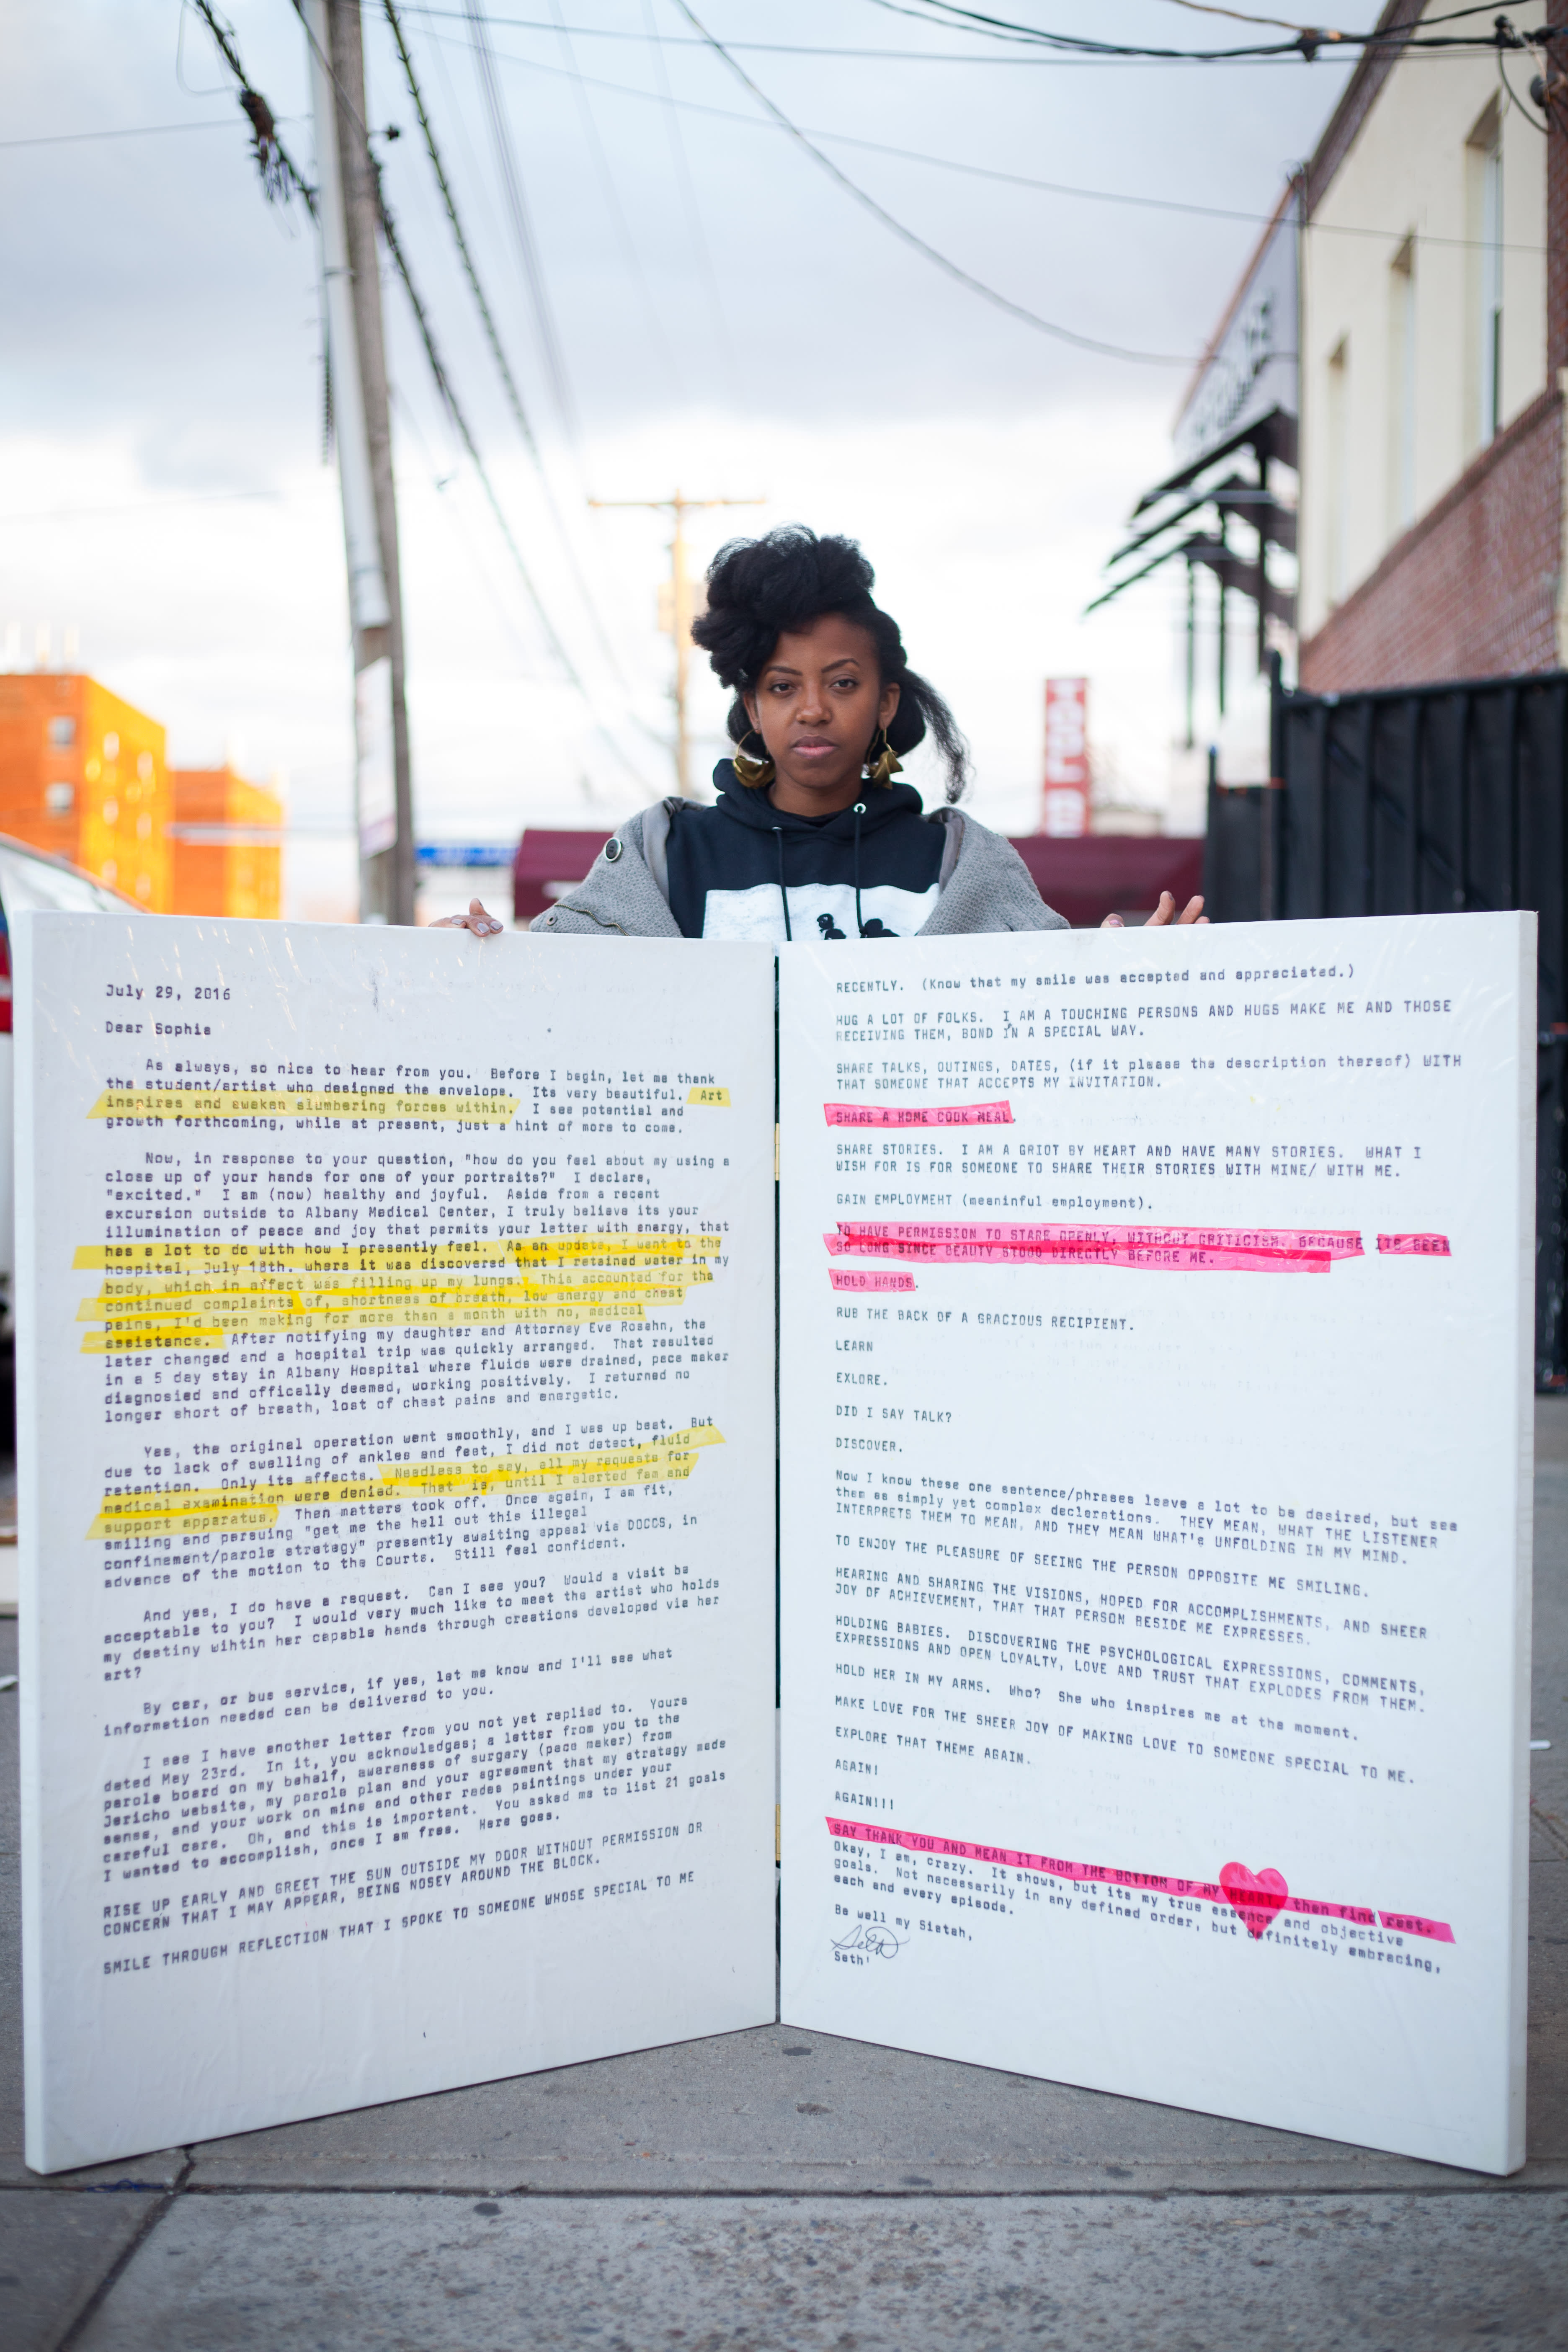 July 29, 2016
Dear Sophia
As always, so nice to hear from you. Before I begin, let me thank
the student/artist who designed the envelope. Its very beautiful. Art
inspires and awaken slumbering forces within. I see potential and
growth forthcoming, while at present, just a hint of more to come.
Now, in response to your question, "how do you feel about my using a
close up of your hands for one of your portraits?" I declare,
"excited." I am (now) healthy and joyful. Aside from a recent
excursion outside to Albany Medical Center, I truly believe its your
illumination of peace and joy that permits your letter with energy, that
has a lot to do with how I presently feel. As an update, I went to the
hospital, July 18th. where it was discovered that I retained water in my
body, which in affect was filling up my lungs. This accounted for the
continued complaints of, shortness of breath, low energy and chest
pains, I'd been making for more than a month with no, medical
assistance. After notifying my daughter and Attorney Eve Rosahn, the
later changed and a hospital trip was quickly arranged. That resulted
in a 5 day stay in Albany Hospital where fluids were drained, pace maker
diagnosied and offically deemed, working positively. I returned no
longer short of breath, lost of chest pains and energetic.
Yes, the original operation went smoothly, and I was up beat. But
due to lack of swelling of ankles and feet, I did not detect, fluid
retention. Only its affects. Needless to say, all my requests for
medical examination were denied. That is, until I alerted fam and
support apparatus. Then matters took off. Once again, I am fit,
smiling and persuing "get me the hell out this illegal
confinement/parole strategy" presently awaiting appeal via DOCCS, in
advance of the motion to the Courts. Still feel confident.
And yes, I do have a request. Can I see you? Would a visit be
acceptable to you? I would very much like to meet the artist who holds
my destiny wihtin her capable hands through creations developed via her
art?
By car, or bus service, if yes, let me know and I'll see what
information needed can be delivered to you.
I see I have another letter from you not yet replied to. Yours
dated May 23rd. In it, you acknowledges; a letter from you to the
parole board on my behalf, awareness of surgary (pace maker) from
Jericho website, my parole plan and your agreement that my strategy made
sense, and your work on mine and other redes paintings under your
careful care. Oh, and this is important. You asked me to list 21 goals
I wanted to accomplish, once I am free. Here goes.
RISE UP EARLY AND GREET THE SUN OUTSIDE MY DOOR WITHOUT PERMISSION OR
CONCERN THAT I MAY APPEAR, BEING NOSEY AROUND THE BLOCK.
SMILE THROUGH REFLECTION THAT I SPOKE TO SOMEONE WHOSE SPECIAL TO ME
RECENTLY. (Know that my smile was accepted and appreciated.)
HUG A LOT OF FOLKS. I AM A TOUCHING PERSONS AND HUGS MAKE ME AND THOSE
RECEIVING THEM, BOND IN A SPECIAL WAY.
SHARE TALKS, OUTINGS, DATES, (if it please the description thereof) WITH
THAT SOMEONE THAT ACCEPTS MY INVITATION.
SHARE A HOME COOK MEAL.
SHARE STORIES. I AM A GRIOT BY HEART AND HAVE MANY STORIES. WHAT I
WISH FOR IS FOR SOMEONE TO SHARE THEIR STORIES WITH MINE/ WITH ME.
GAIN EMPLOYMEHT (meaninful employment).
TO HAVE PERMISSION TO STARE OPENLY, WITHOUT CRITICISM. BECAUSE ITS BEEN
SO LONG SINCE BEAUTY STOOD DIRECTLY BEFORE ME.
HOLD HANDS.
RUB THE BACK OF A GRACIOUS RECIPIENT.
LEARN
EXLORE.
DID I SAY TALK?
DISCOVER.
Now I know these one sentence/phrases leave a lot to be desired, but see
them as simply yet complex declerations. THEY MEAN, WHAT THE LISTENER
INTERPRETS THEM TO MEAN, AND THEY MEAN WHAT's UNFOLDING IN MY MIND.
TO ENJOY THE PLEASURE OF SEEING THE PERSON OPPOSITE ME SMILING.
HEARING AND SHARING THE VISIONS, HOPED FOR ACCOMPLISHMENTS, AND SHEER
JOY OF ACHIEVEMENT, THAT THAT PERSON BESIDE ME EXPRESSES.
HOLDING BABIES. DISCOVERING THE PSYCHOLOGICAL EXPRESSIONS, COMMENTS,
EXPRESSIONS AND OPEN LOYALTY, LOVE AND TRUST THAT EXPLODES FROM THEM.
HOLD HER IN MY ARMS. Who? She who inspires me at the moment.
MAKE LOVE FOR THE SHEER JOY OF MAKING LOVE TO SOMEONE SPECIAL TO ME.
EXPLORE THAT THEME AGAIN.
AGAIN!
AGAIN!!!
SAY THANK YOU AND MEAN IT FROM THE BOTTOM OF MY HEART, then find rest.
Okay, I am, crazy. It shows, but its my true essence and objective
goals. Not necessarily in any defined order, but definitely embracing,
each and every episode.
Be well my Sistah,
Seth
Seth'